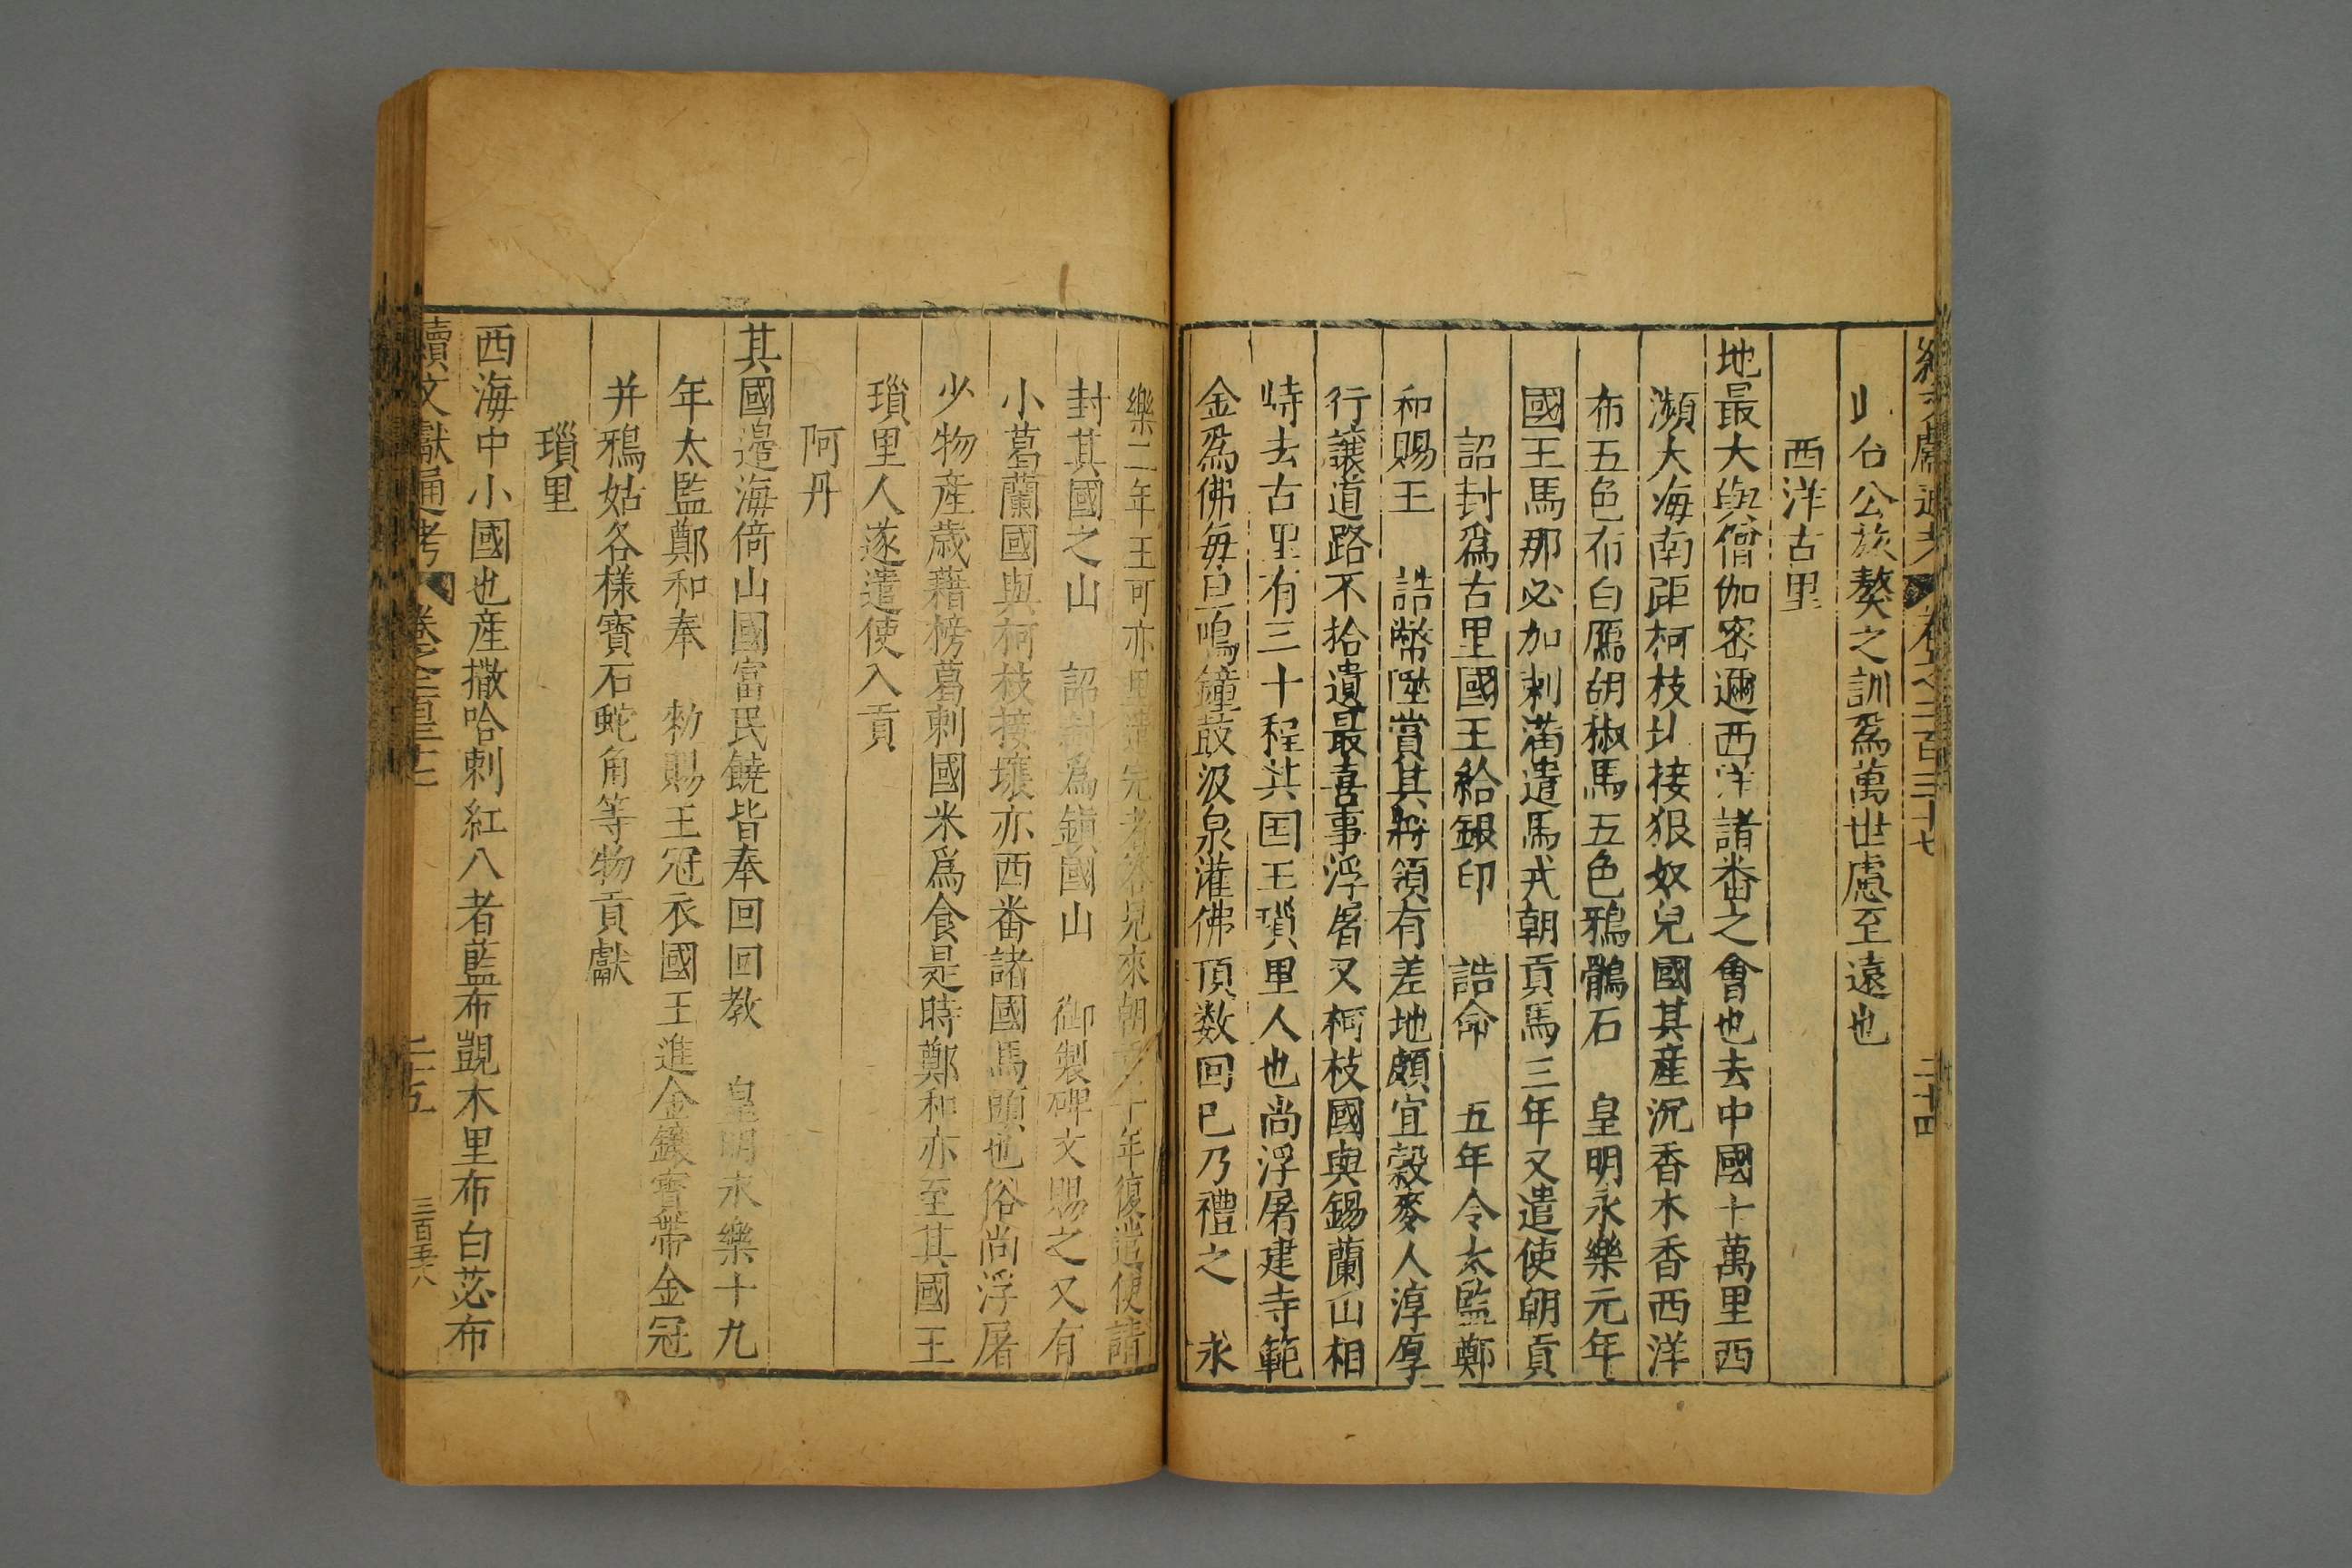 續文獻通考 卷之二百三十七 二十四
此台公族獒之訓爲萬世慮至遠也
西洋古里
地最大與僧伽密邇西洋諸番之會也去中國十萬里西
瀕大海南距柯枝北接狠奴兒國其産沉香木香西洋
布五色布白鴈胡椒馬五色鴉鶻石 皇明永樂元年
國王馬那必加刺滿遣馬戎朝貢馬三年又遣使朝貢
詔封爲古里國王給銀印 誥命 五年令太監鄭
和賜王 誥幣陞賞其將領有差地頗宜穀麥人淳厚
行讓道路不拾遺最喜事浮屠又柯枝國與錫蘭山相
峙去古里有三十程其囯王瑣里人也尚浮屠建寺範
金爲佛每旦鳴鐘鼓汲泉灌佛頂数回巳乃禮之 永
樂二年王可亦里遣完者答兒來朝貢十年復遣使請
封其國之山 詔封爲鎮國山 御製碑文賜之又有
小葛蘭國與柯枝接壤亦西番諸國馬頭也俗尚浮屠
少物産歲藉榜葛刺國米爲食是時鄭和亦至其國王
瑣里人遂遣使入貢
阿丹
其國邊海倚山國富民饒皆奉回回教 皇明永樂十九
年太監鄭和奉 勑賜王冠衣國王進金鑲寶帶金冠
并鴉姑各樣寶石蛇角等物貢獻
瑣里
西海中小國也産撒哈刺紅八者藍布覬木里布白苾布
續文獻通考 卷之二百三十七 二十五 三百五十八